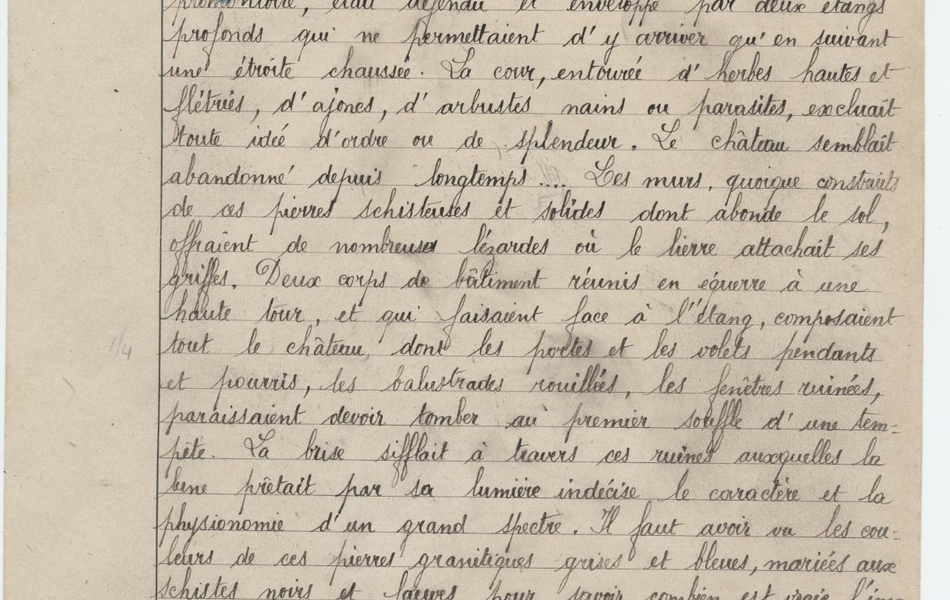 promontoire, était défendu et enveloppé par deux étangs
profonds qui ne permettaient d'y arriver qu'en suivant
une étroite chaussée. La cour, entourée d'herbes hautes et
flétries, d'ajones, d'arbustes nains ou parasites, excluait
toute idée d'ordre ou de splendeur. Le château semblait
abandonné depuis longtemps .... Les murs, quoique construits
de ces pierres schisteuses et solides dont abonde le sol,
offraient de nombreuses lézardes où le lierre attachait ses
griffes. Deux corps de bâtiment réunis en équerre à une
haute tour, et qui faisaient face à l'étang, composaient
1/4
tout le château, dont les portes et les volets pendants
et pourris, les balustrades rouillées, les fenêtres ruinées,
paraissaient devoir tomber au premier souffle d'une tem=
pête. La brise sifflait à travers ces ruines auxquelles la
lune prêtait par sa lumière indécise le caractère et la
physionomie d'un grand spectre. Il faut avoir vu les cou=
leurs de ces pierres granitiques grises et bleues, mariées aux
schistes noirs et fauves pour savoir combien est vraie